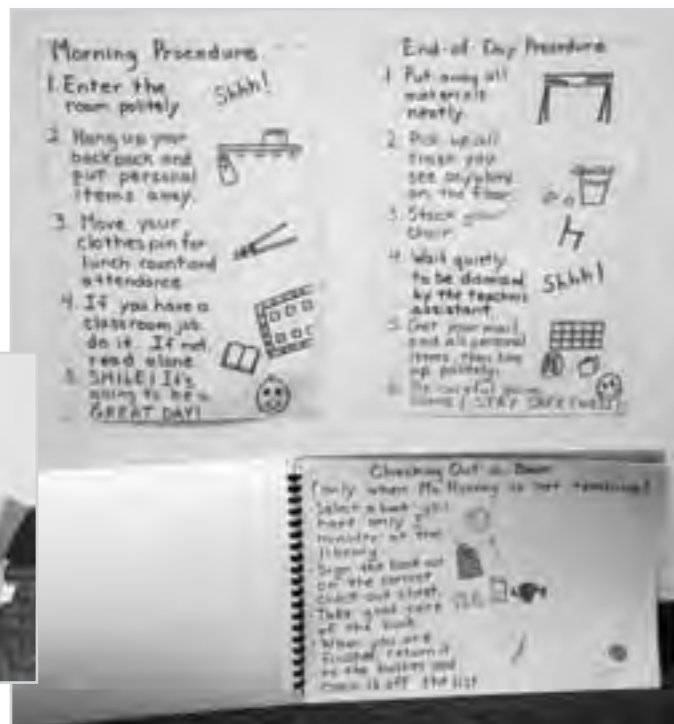 Morning Procedure
1. Enter the
room politely
Shhh!
2. Hang up your
backpack and
put personal
items away.
3. Move your
clothespin for
lunch count and
attendance.
4. If you have a
classroom job
do it. If not,
read alone.
5. SMILE! It's
going to be a
GREAT DAY!
End-of Day Procedure
1. Put away all
materials
neatly.
2. Pick up all
trash you
see anywhere
on the floor.
3. Stack your
chair.
4. Wait quietly
to be dismissed
by the teacher's
assistant.
Shhh!
5. Get your mail
and all personal
items, then line
up politely.
6. Be careful going
home! STAY SAFE
Checking Out a Book
(only when Ms. is not teaching)
Select a book you
have only
at the
library
Sign the book out
on the correct
check-out sheet.
Take good care
of the book.
When you are
finished, return it
to the basket and
check it off the list